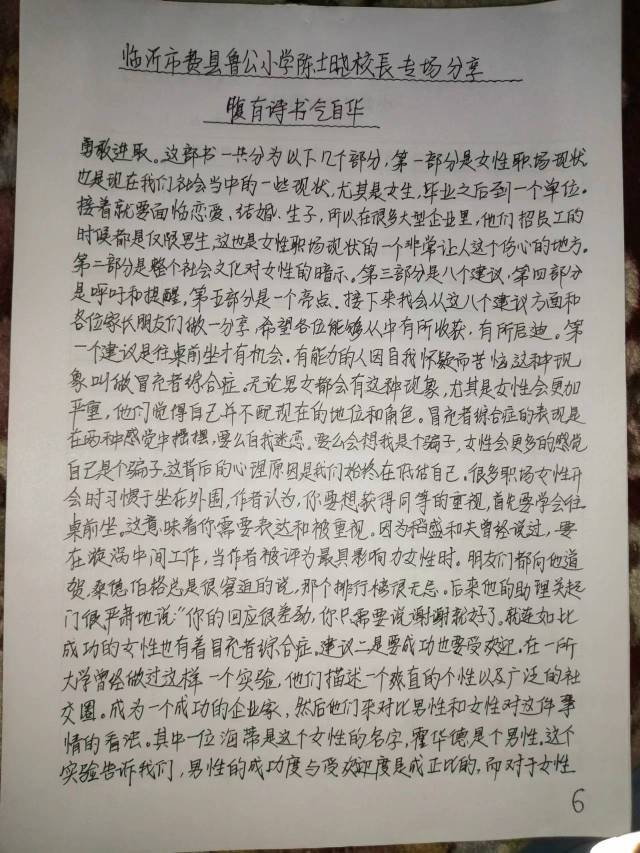 临沂市费县鲁公小学陈士晓校長专场分享
腹有诗书气自华
勇敢进取。这部书一共分为以下几个部分，第一部分是女性职场现状
也是现在我们社会当中的一些现状，尤其是女生，毕业之后到一个单位。
接着就要面临恋爱、结婚、生子，所以在很多大型企业里，他们招员工的
时候都是仅限男生，这也是女性职场现状的一个非常让人这个伤心的地方。
第二部分是整个社会文化对女性的暗示。第三部分是八个建议，第四部分
是呼吁和提醒，第五部分是一个亮点。接下来我会从这八个建议方面和
各位家长朋友们做一分享，希望各位能够从中有所收获，有所启迪。第
一个建议是往桌前坐才有机会。有能力的人因自我怀疑而苦恼这种现
象叫做冒充者综合症。无论男女都会有这种现象，尤其是女性会更加
严重，他们觉得自己并不配现在的地位和角色。冒充者综合症的表现是
在两种感觉中摇摆，要么自我迷恋。要么会想我是个骗子，女性会更多的感觉
自己是个骗子，这背后的心理原因是我们始终在低估自己。很多职场女性开
会时习惯于坐在外围，作者认为，你要想获得同等的重视，首先要学会往
桌前坐。这意味着你需要表达和被重视。因为稻盛和夫曾经说过，要
在漩涡中间工作，当作者被评为最具影响力女性时。朋友们都向他道
贺，桑德伯格总是很窘迫的说，那个排行榜很无忌。后来他的助理关起
门很严肃地说："你的回应很差劲，你只需要说谢谢就好了。就连如此
成功的女性也有着冒充者综合症。建议二是要成功也要受欢迎。在一所
大学曾经做过这样一个实验，他们描述一个爽直的个性以及广泛的社
交圈。成为一个成功的企业家，然后他们来对比男性和女性对这件事
情的看法。其中一位海蒂是这个女性的名字，霍华德是个男性。这个
实验告诉我们，男性的成功度与受欢迎度是成正比的，而对于女性
6